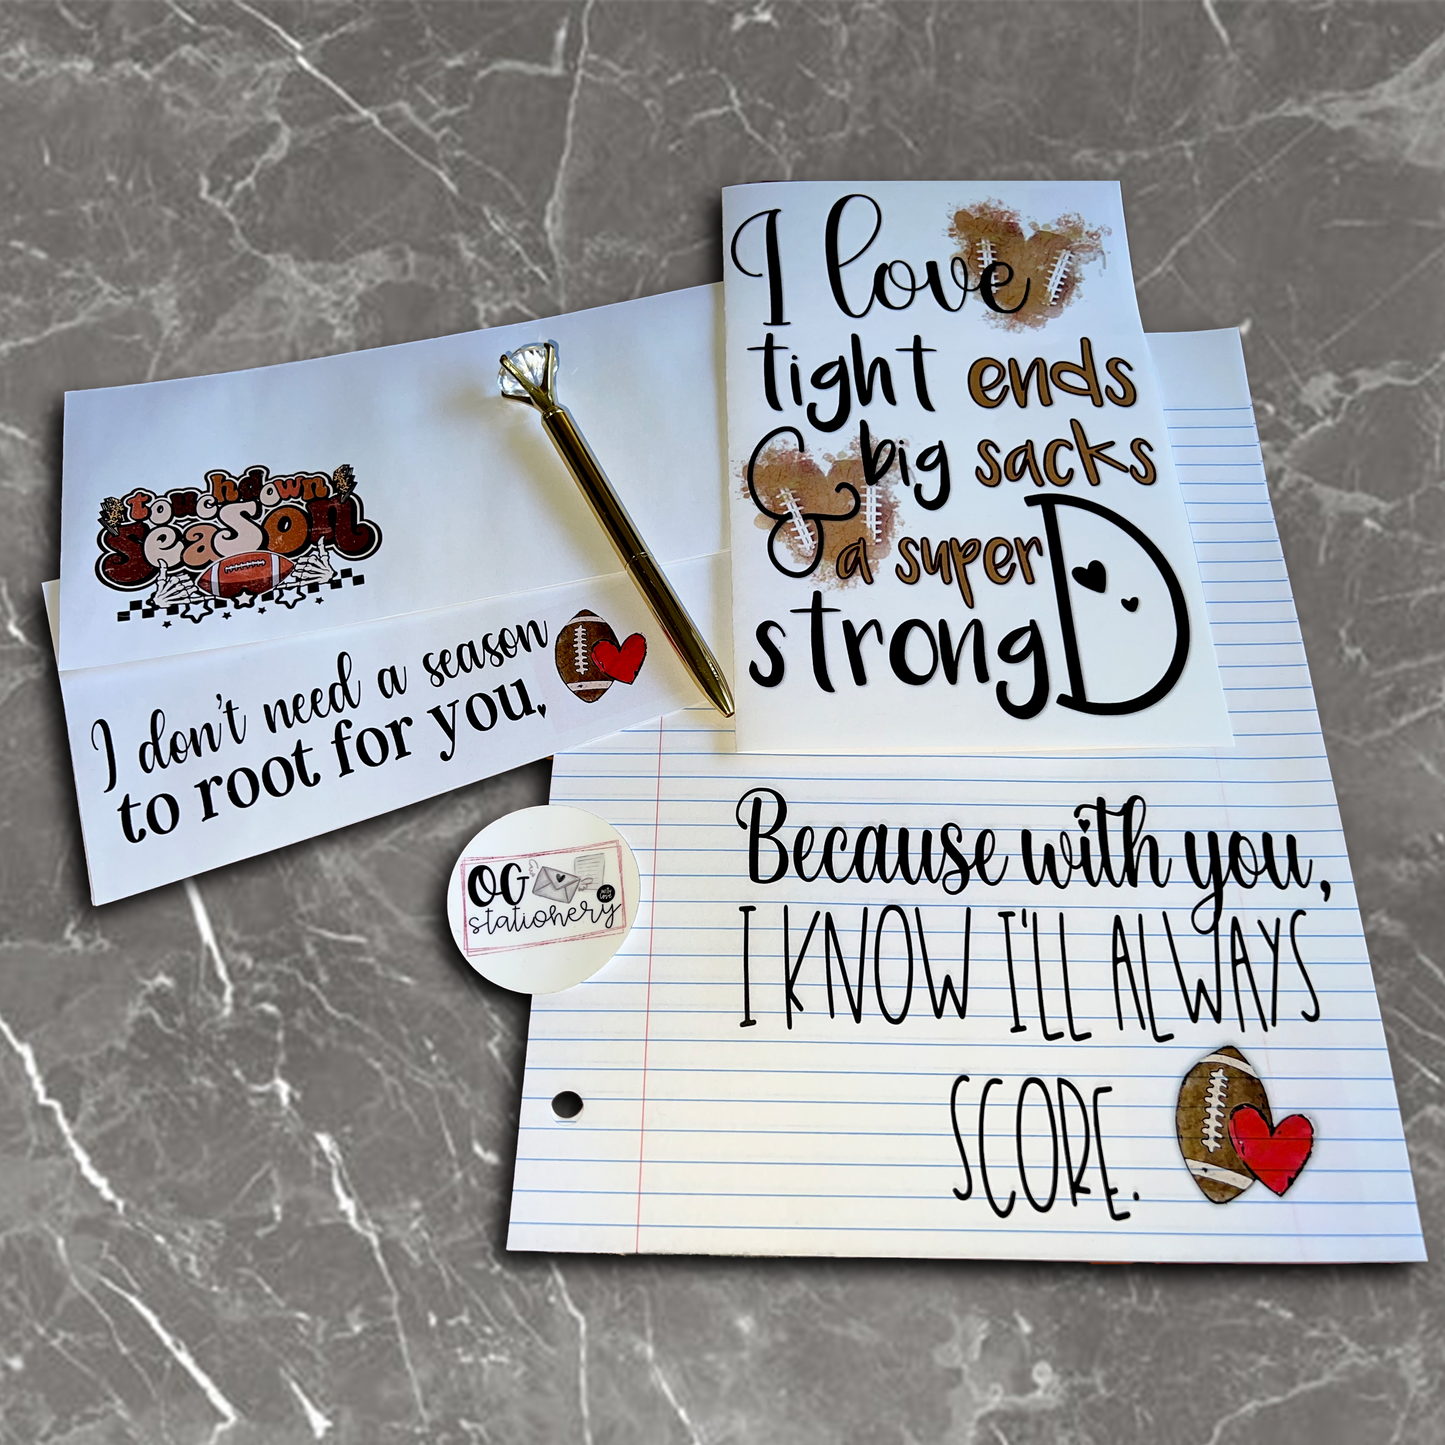 I love
tight ends
& big sacks
a super
strong D
touchdown
season
I don't need a season
to root for you.
OG
stationery
Because with you,
I KNOW I'LL ALWAYS
SCORE.